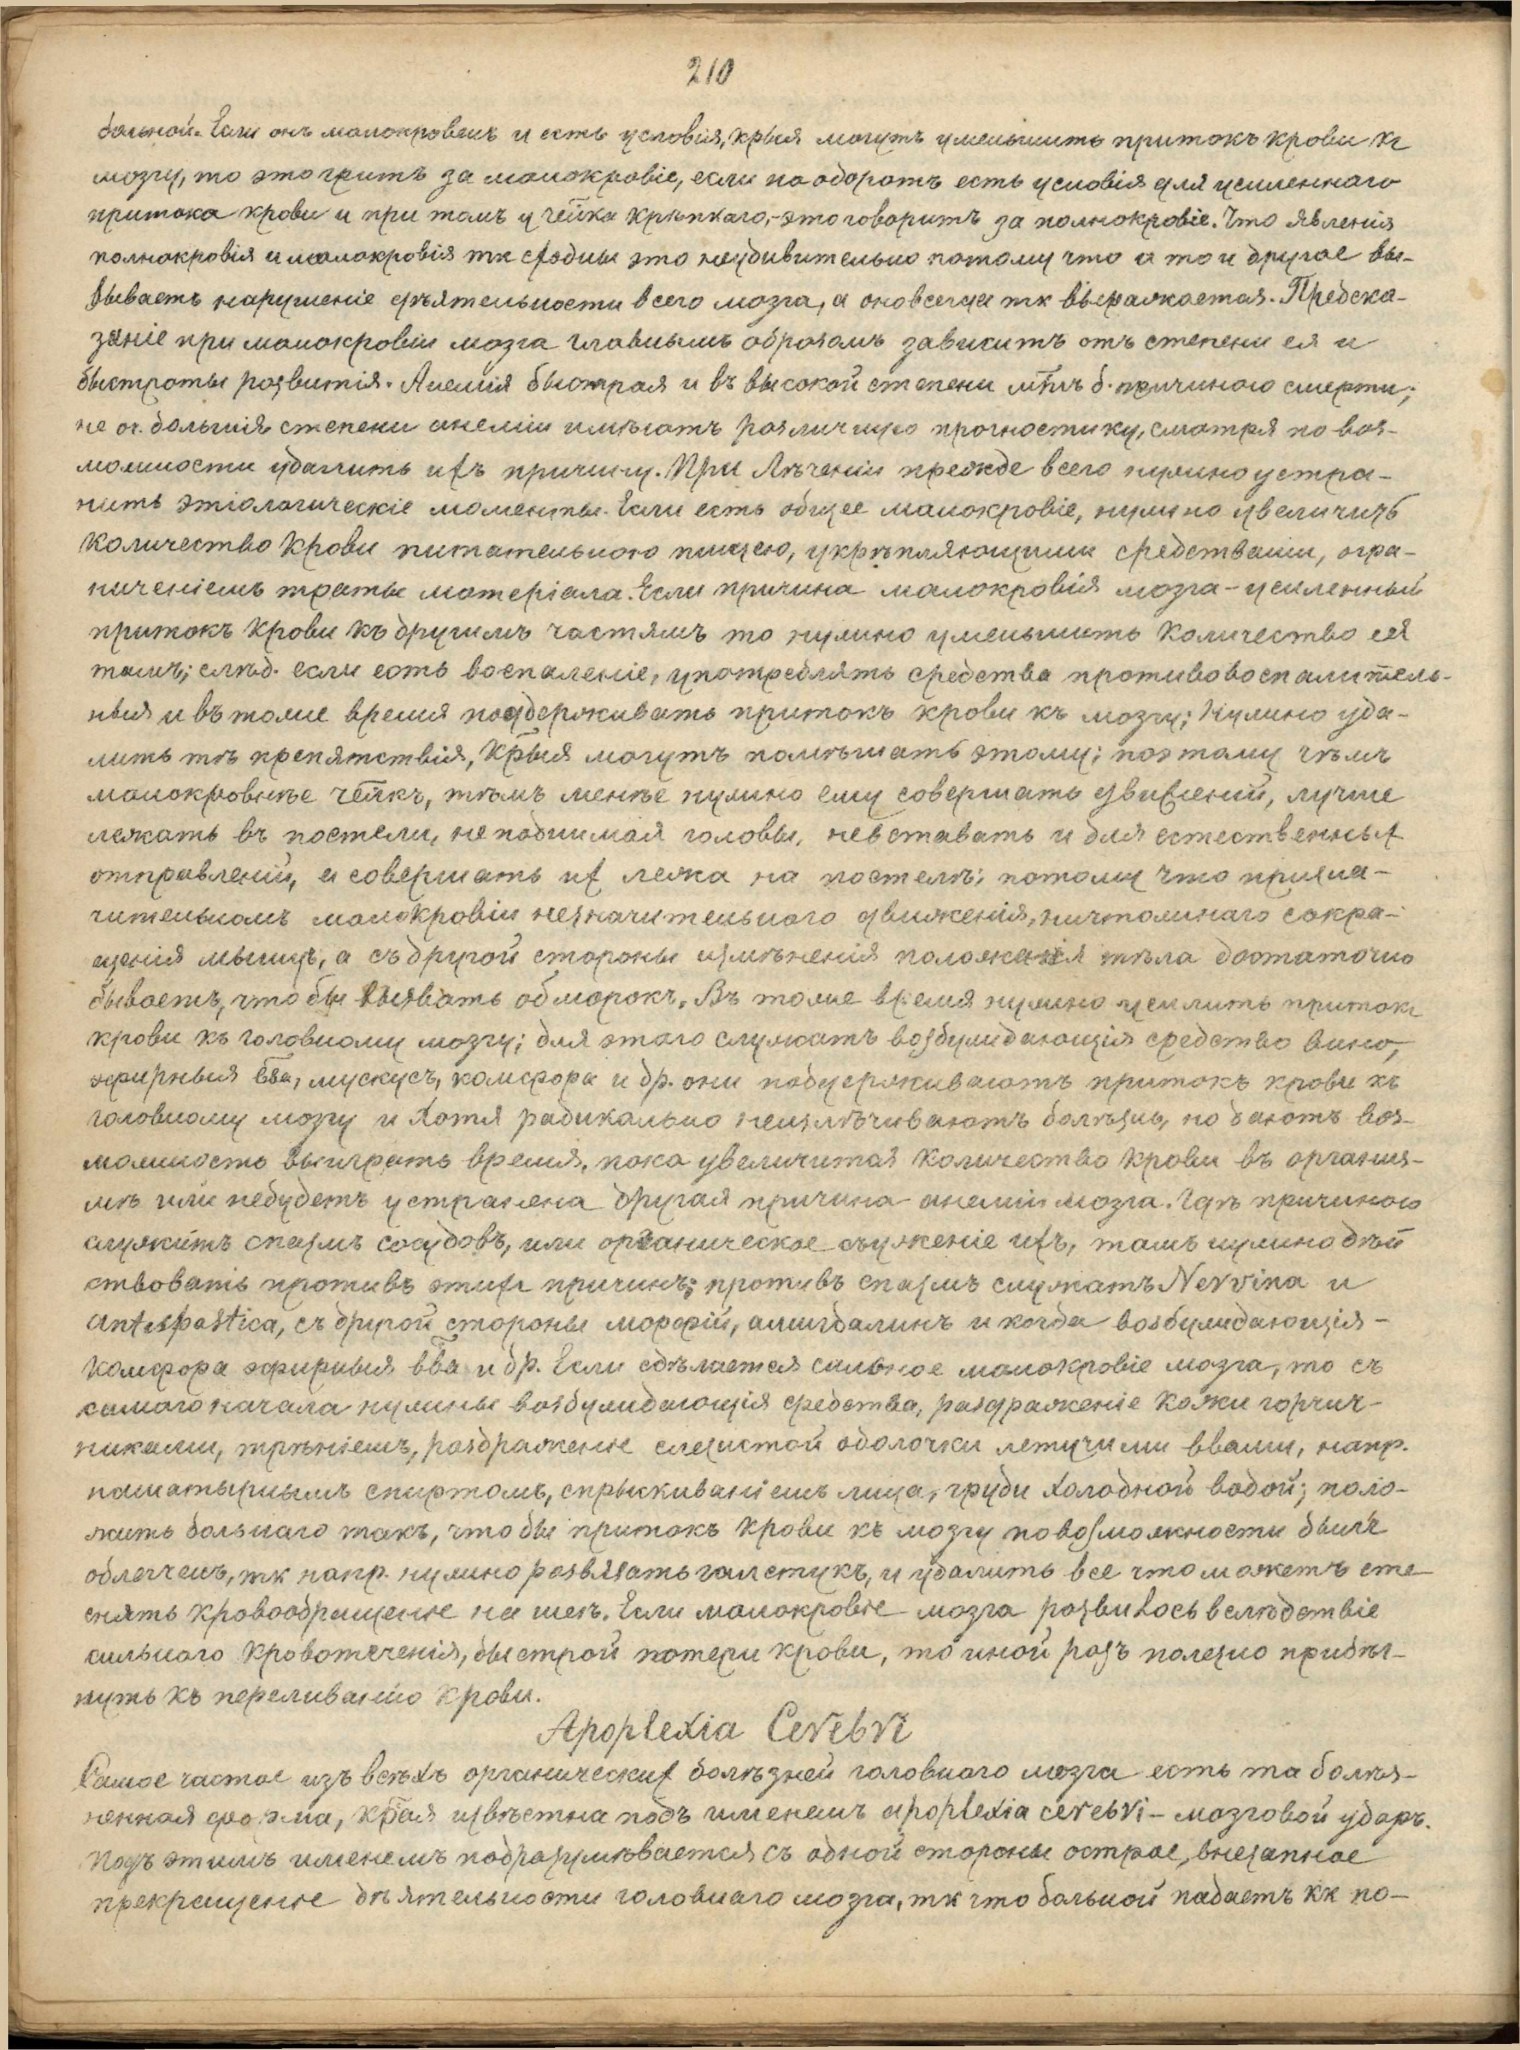 210
больной. Если онъ малокровенъ и есть условія, крыя могутъ уменьшить притокъ крови къ
мозгу, то это грить за малокровіе, если наоборотъ есть условія для усиленнаго
притока крови и при томъ у чейка крѣпкаго, - это говоритъ за полнокровіе. Что явленія
полнокровія и малокровія тк сходны это неудивительно потому что и то и другое вы-
зываетъ нарушеніе дѣятельности всего мозга, а оно всегда тк выражается. Предска-
заніе при малокровіи мозга главнымъ образомъ зависитъ отъ степени ея и
быстроты развитія. Анемія быстрая и въ высокой степени мѣтъ б. причиною смерти;
не оч. большія степени анеміи имѣютъ различную прогностику, смотря по воз-
можности удалить ихъ причину. При лѣченіи прежде всего нужно устра-
нить этіологическіе моменты. Если есть общее малокровіе, нужно увеличить
количество крови питательною пищею, укрѣпляющими средствами, огра-
ниченіемъ траты матеріала. Если причина малокровія мозга - усиленный
притокъ крови къ другимъ частямъ то нужно уменьшить количество ея
тамъ; слѣд. если есть воспаленіе, употреблять средства противовоспалитель-
ныя и въ тоже время поддерживать притокъ крови къ мозгу; нужно уда-
лить тѣ препятствія, крыя могутъ помѣшать этому; поэтому чѣмъ
малокровнѣе чейкъ, тѣмъ менѣе нужно ему совершать движеній, лучше
лежать въ постели, не поднимая головы, не вставать и для естественныхъ
отправленій, а совершать их лежа на постелѣ; потому что при зна-
чительномъ малокровіи незначительнаго движенія, ничтожнаго сокра-
щенія мышцъ, а съ другой стороны измѣненія положенія тѣла достаточно
бываетъ, чтобы вызвать обморокъ. Въ тоже время нужно усилить притокъ
крови къ головному мозгу; для этого служатъ возбуждающія средства вино,
эфирныя вва, мускусъ, камфора и др. они поддерживаютъ притокъ крови къ
головному мозгу и хотя радикально не излѣчиваютъ болѣзнь, но даютъ воз-
можность выиграть время, пока увеличится количество крови въ организ-
мѣ или небудетъ устранена другая причина анеміи мозга. Гдѣ причиною
служитъ спазмъ сосудовъ, или органическое съуженіе ихъ, тамъ нужно дѣй
ствовать противъ этихъ причинъ; противъ спазмъ служатъ Nervina и
antispastica, съ другой стороны морфій, амигдалинъ и когда возбуждающія -
камфора эфирныя вва и др. Если сдѣлается сильное малокровіе мозга, то съ
самаго начала нужны возбуждающія средства, раздраженіе кожи горчич-
никами, трѣніемъ, раздраженіе слизистой оболочки летучими ввами, напр.
нашатырнымъ спиртомъ, спрыскиваніемъ лица, груди холодной водой; поло-
жить больнаго такъ, чтобы притокъ крови къ мозгу по возможности былъ
облегченъ, тк напр. нужно развязать галстукъ, и удалить все что можетъ сте
снять кровообращеніе на шеѣ. Если малокровіе мозга развилось вслѣдствіе
сильнаго кровотеченія, быстрой потери крови, то иной разъ полезно прибѣг-
нуть къ переливанію крови.
Apoplexia Cerebri
Самое частое изъ всѣхъ органических болѣзней головнаго мозга есть та болѣз-
ненная форма, края извѣстна подъ именемъ apoplexia cerebri - мозговой ударъ.
Подъ этимъ именемъ подразумѣвается съ одной стороны острое, внезапное
прекращеніе дѣятельности головнаго мозга, тк что больной падаетъ кк по-